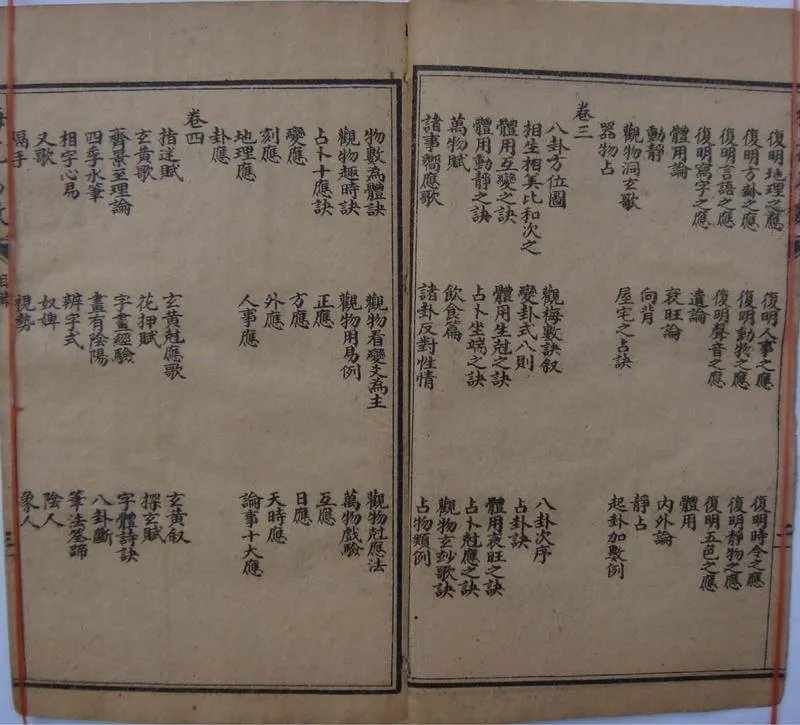 復明地理之應 復明人事之應 復明時令之應
復明方卦之應 復明動物之應 復明靜物之應
復明言語之應 復明聲音之應 復明五色之應
復明寫字之應 遺論 體用
體用論 衰旺論 內外論
動靜 向背 靜占
觀物洞玄歌 屋宅之占訣 起卦加數例
器物占
卷三
八卦方位圖 觀梅數訣叙 八卦次序
相生相尅比和次之 變卦式八則 占卦訣
體用互變之訣 體用生尅之訣 體用衰旺之訣
體用動靜之訣 占卜坐端之訣 占卜尅應之訣
萬物賦 飲食篇 觀物玄妙歌訣
諸事嚮應歌 諸卦反對性情 占物類例
物數為體訣 觀物看變爻為主 觀物尅應法
觀物趣時訣 觀物用易例 萬物戲驗
占卜十應訣 正應 互應
變應 方應 日應
刻應 外應 天時應
地理應 人事應 論事十大應
卦應
卷四
指迷賦 玄黃尅應歌 玄黃叙
玄黃歌 花押賦 探玄賦
齊景至理論 字畫經驗 字體詩訣
四季水筆 畫有陰陽 八卦斷
相字心易 辨字式 筆法筌蹄
又歌 奴婢 陰人
隔手 視勢 象人